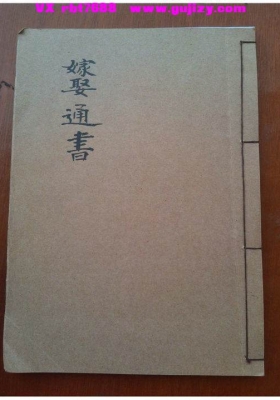 VX rbt1888 www.gujizy.com
嫁娶通書